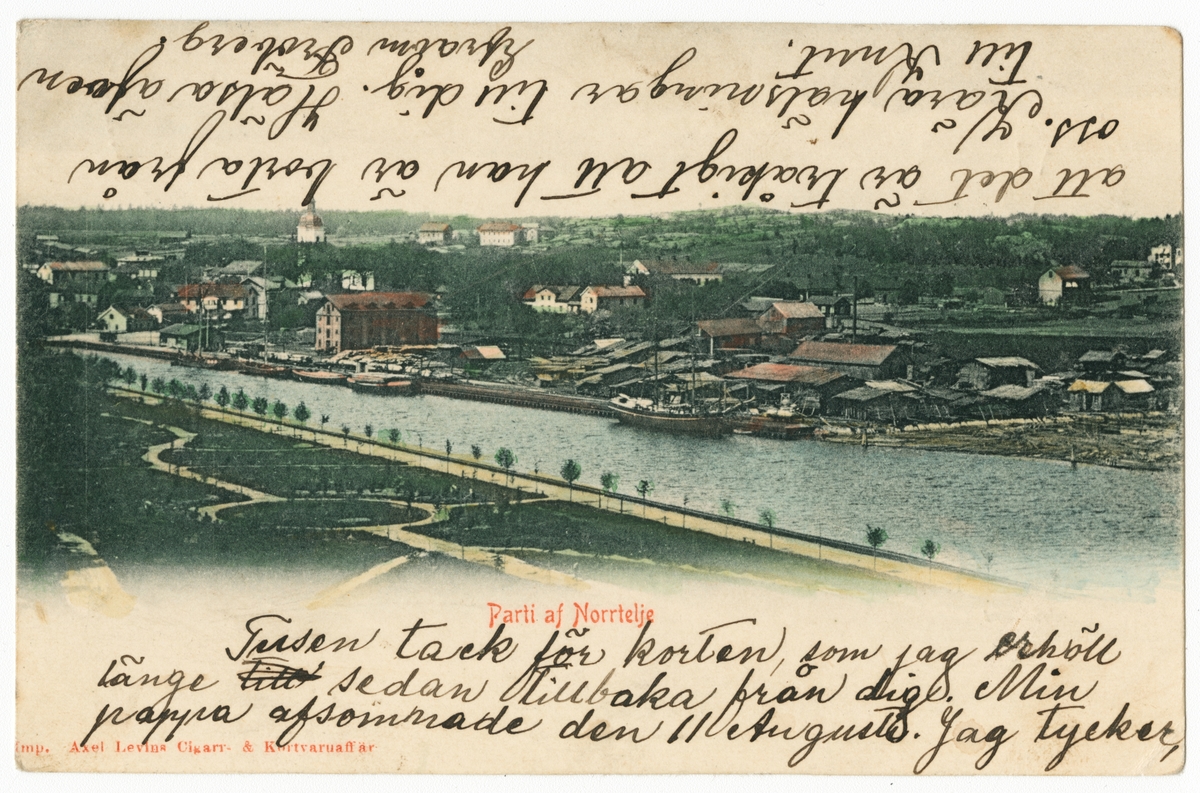 Parti af Norrtelje
Tusen tack för korten, som jag erhöll
länge till sedan tillbaka från dig. Min
pappa afsomnade den 11 Augusti. Jag tycker,
Imp. Axel Levins Cigarr- & Kortvaruaffär
att det är tråkigt att han är borta från
oss. Kära hälsningar till dig. Hälsa äfven
till Knut. Efraim Fröberg!